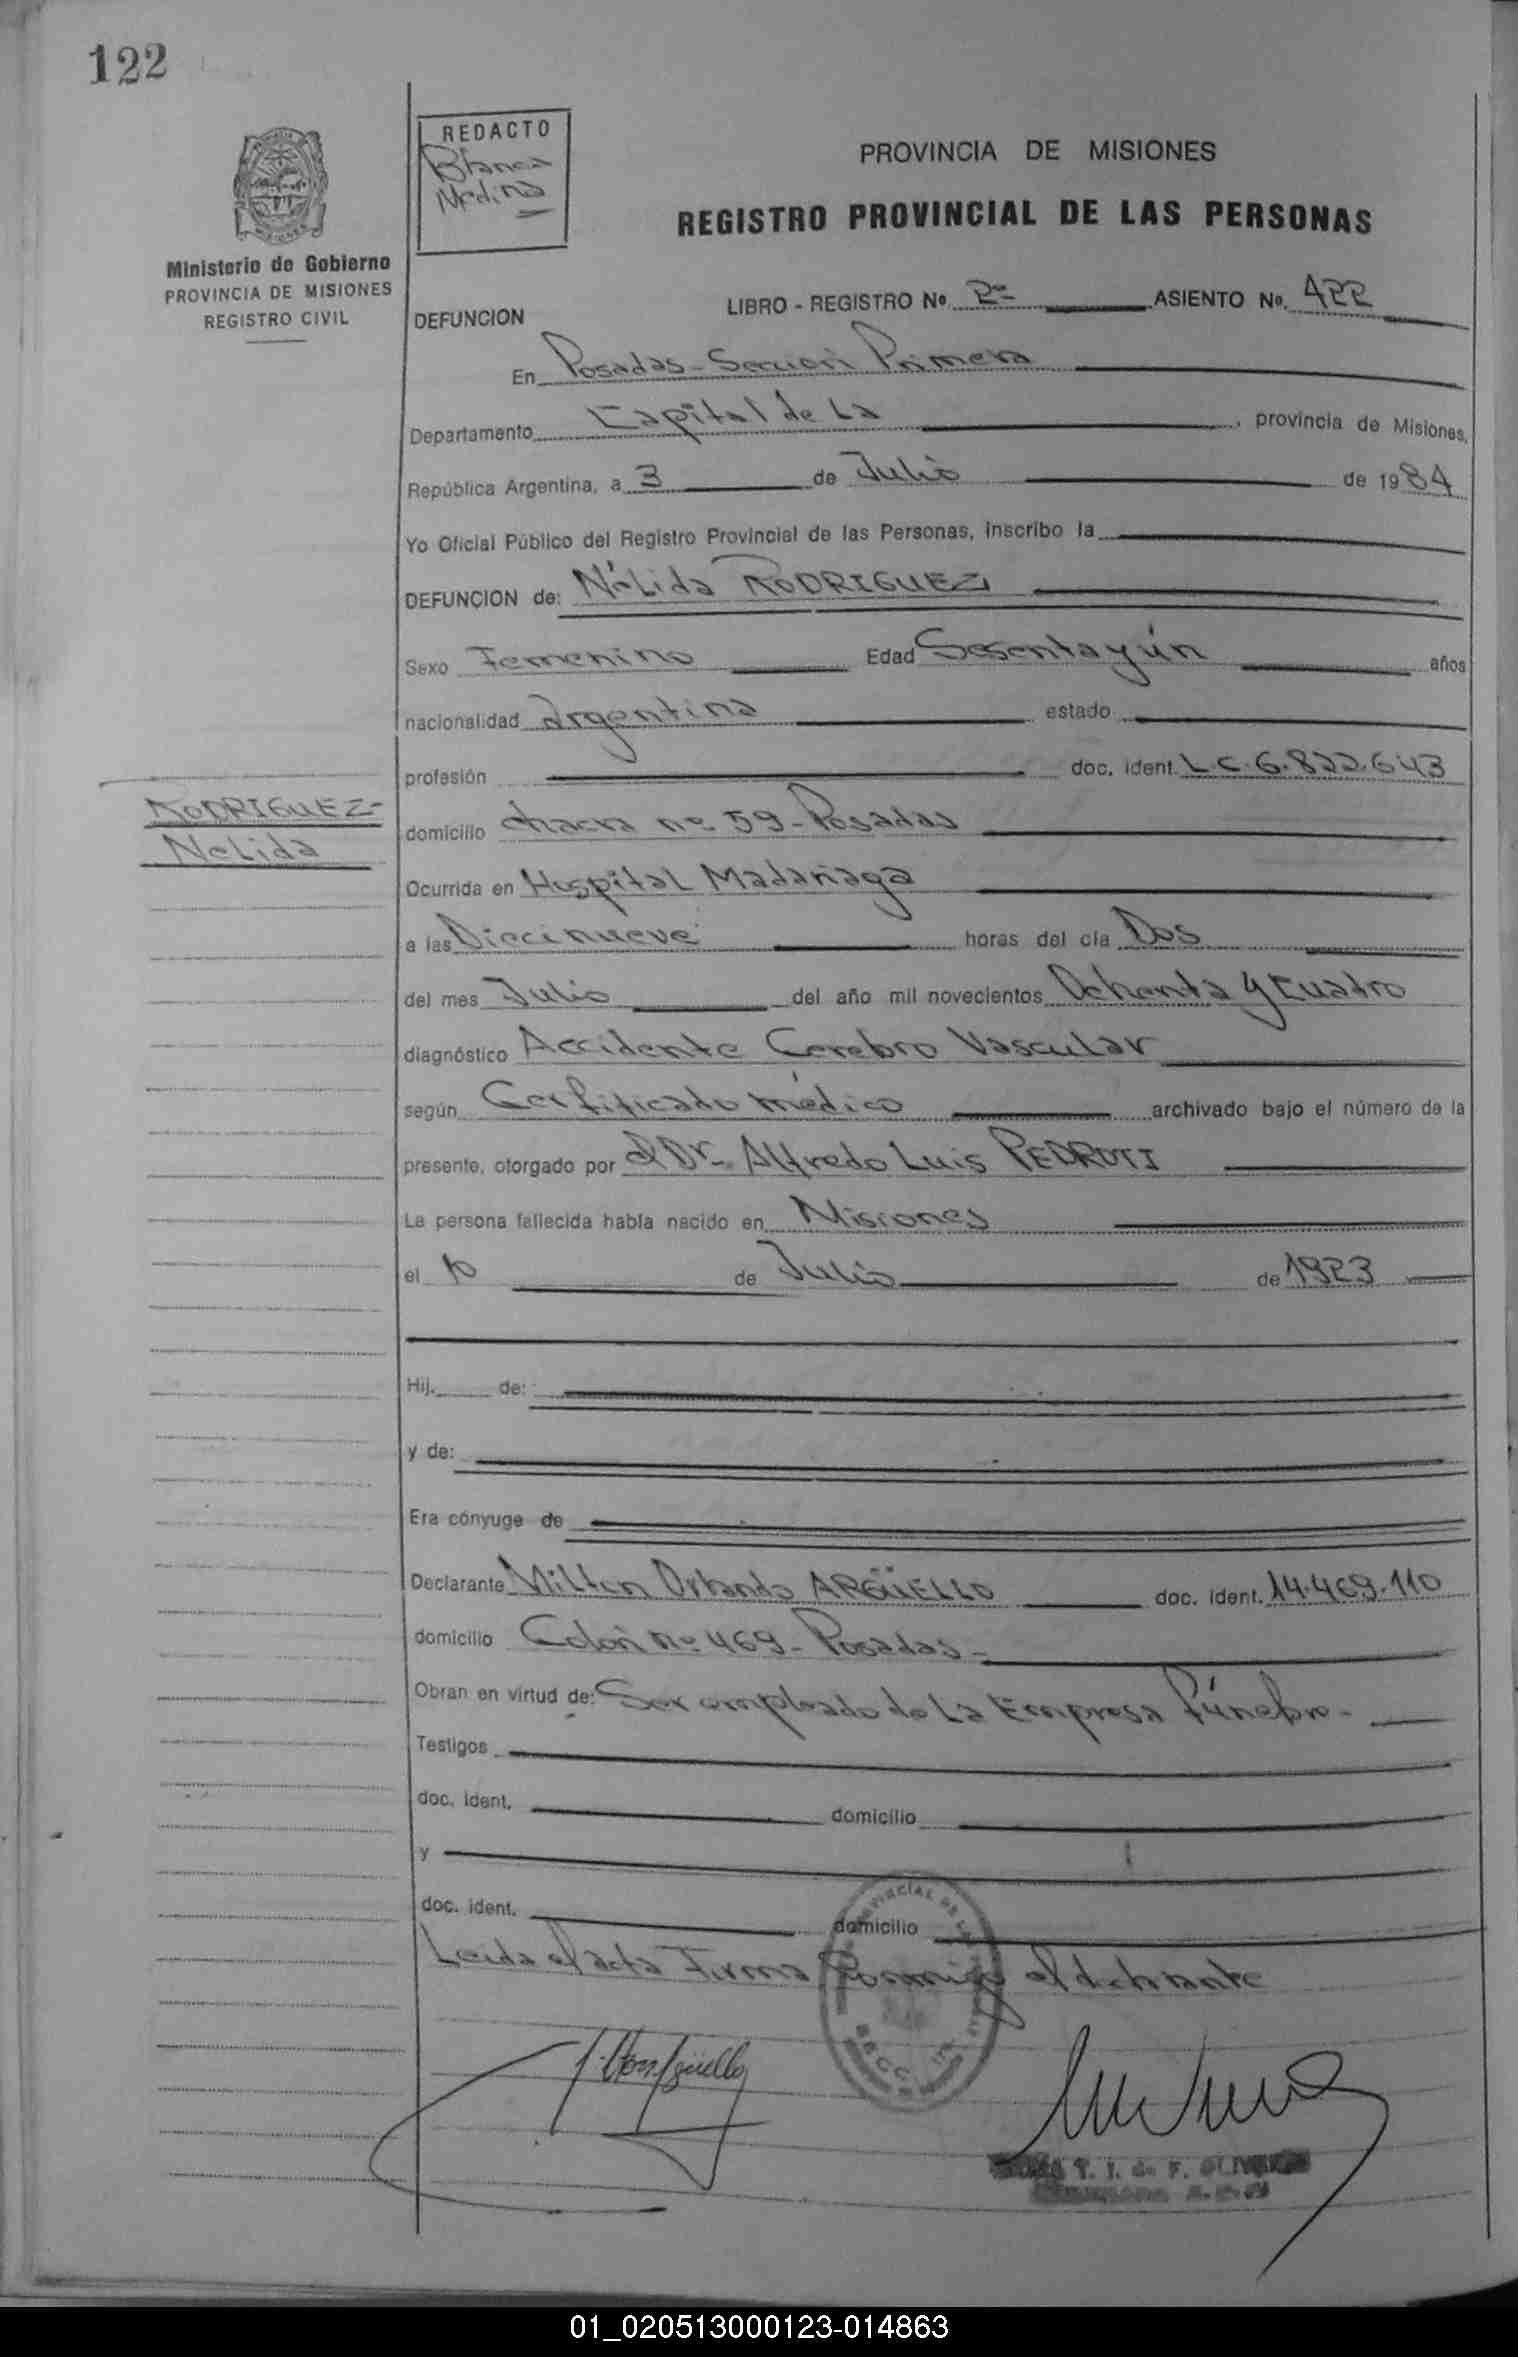 122
REDACTO
Blanca
Medina
PROVINCIA DE MISIONES
REGISTRO PROVINCIAL DE LAS PERSONAS
Ministerio de Gobierno
PROVINCIA DE MISIONES
REGISTRO CIVIL
DEFUNCION
LIBRO - REGISTRO Nº 2º ASIENTO Nº 422
En Posadas - Sección Primera
Departamento Capital de La , provincia de Misiones,
República Argentina, a 3 de Julio de 1984
Yo Oficial Público del Registro Provincial de las Personas, inscribo la
DEFUNCION de: Nélida RODRIGUEZ
Sexo Femenino Edad Sesenta y ún años
nacionalidad argentina estado
profesión doc. ident. L.C. 6.822.643
RODRIGUEZ-
Nelida
domicilio chacra nº 59 - Posadas
Ocurrida en Hospital Madariaga
a las Diecinueve horas del día Dos
del mes Julio del año mil novecientos Ochenta y Cuatro
diagnóstico Accidente Cerebro Vascular
según Certificado médico archivado bajo el número de la
presente, otorgado por el Dr. Alfredo Luis PEDROTI
La persona fallecida había nacido en Misiones
el 10 de Julio de 1923
Hij. de:
y de:
Era cónyuge de
Declarante Milton Orlando ARGÜELLO doc. ident. 14.469.110
domicilio Colón nº 469 - Posadas -
Obran en virtud de: Ser empleado de La Empresa Fúnebre -
Testigos
doc. ident. domicilio
y
doc. ident. domicilio
Leida el acta Firma Conmigo el declarante
01_020513000123-014863